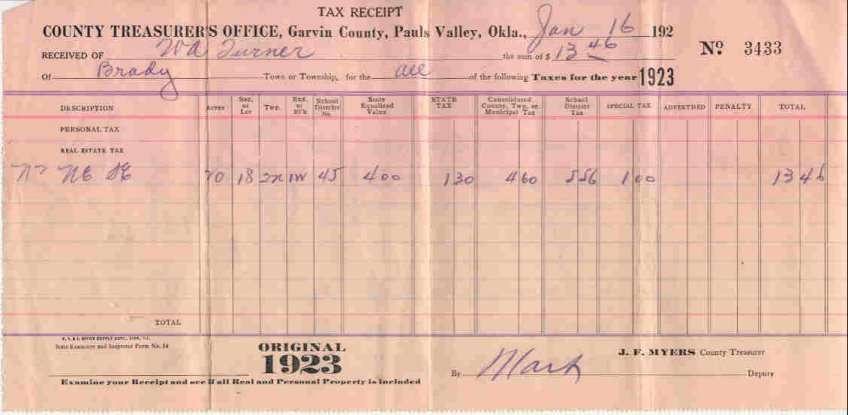 TAX RECEIPT
COUNTY TREASURER'S OFFICE, Garvin County, Pauls Valley, Okla., Jan 16 192
RECEIVED OF W A Turner the sum of $ 13 46 No. 3433
Of Brady Town or Township, for the all of the following Taxes for the year 1923
DESCRIPTION Acres Sec. or Lot Twp. Rng. or Bl'k School District No. State Equalized Value STATE TAX Consolidated County, Twp. or Municipal Tax School District Tax SPECIAL TAX ADVERTISED PENALTY TOTAL
PERSONAL TAX
REAL ESTATE TAX
NE SE 18 2N 1W 45 400 1 30 4 60 5 56 1 00 13 46
TOTAL
State Examiner and Inspector Form No. 14
ORIGINAL
1923
J. F. MYERS County Treasurer
By Mark Deputy
Examine your Receipt and see if all Real and Personal Property is included